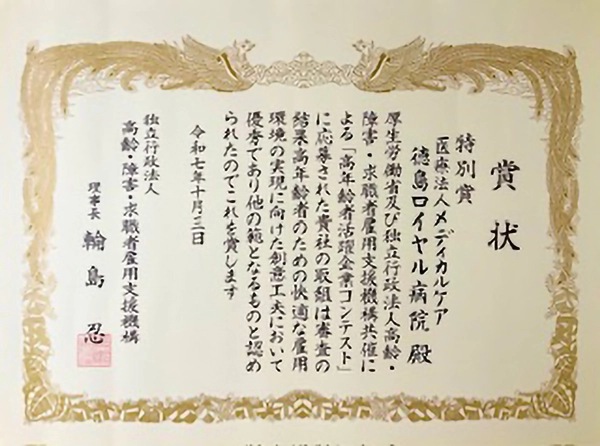 賞状
特別賞
医療法人メディカルケア
徳島ロイヤル病院 殿
厚生労働省及び独立行政法人高齢・
障害・求職者雇用支援機構共催に
よる「高年齢者活躍企業コンテスト」
に応募された貴社の取組は審査の
結果高年齢者のための快適な雇用
環境の実現に向けた創意工夫において
優秀であり他の範となるものと認め
られたのでこれを賞します
令和七年十月三日
独立行政法人
高齢・障害・求職者雇用支援機構
理事長 輪島 忍